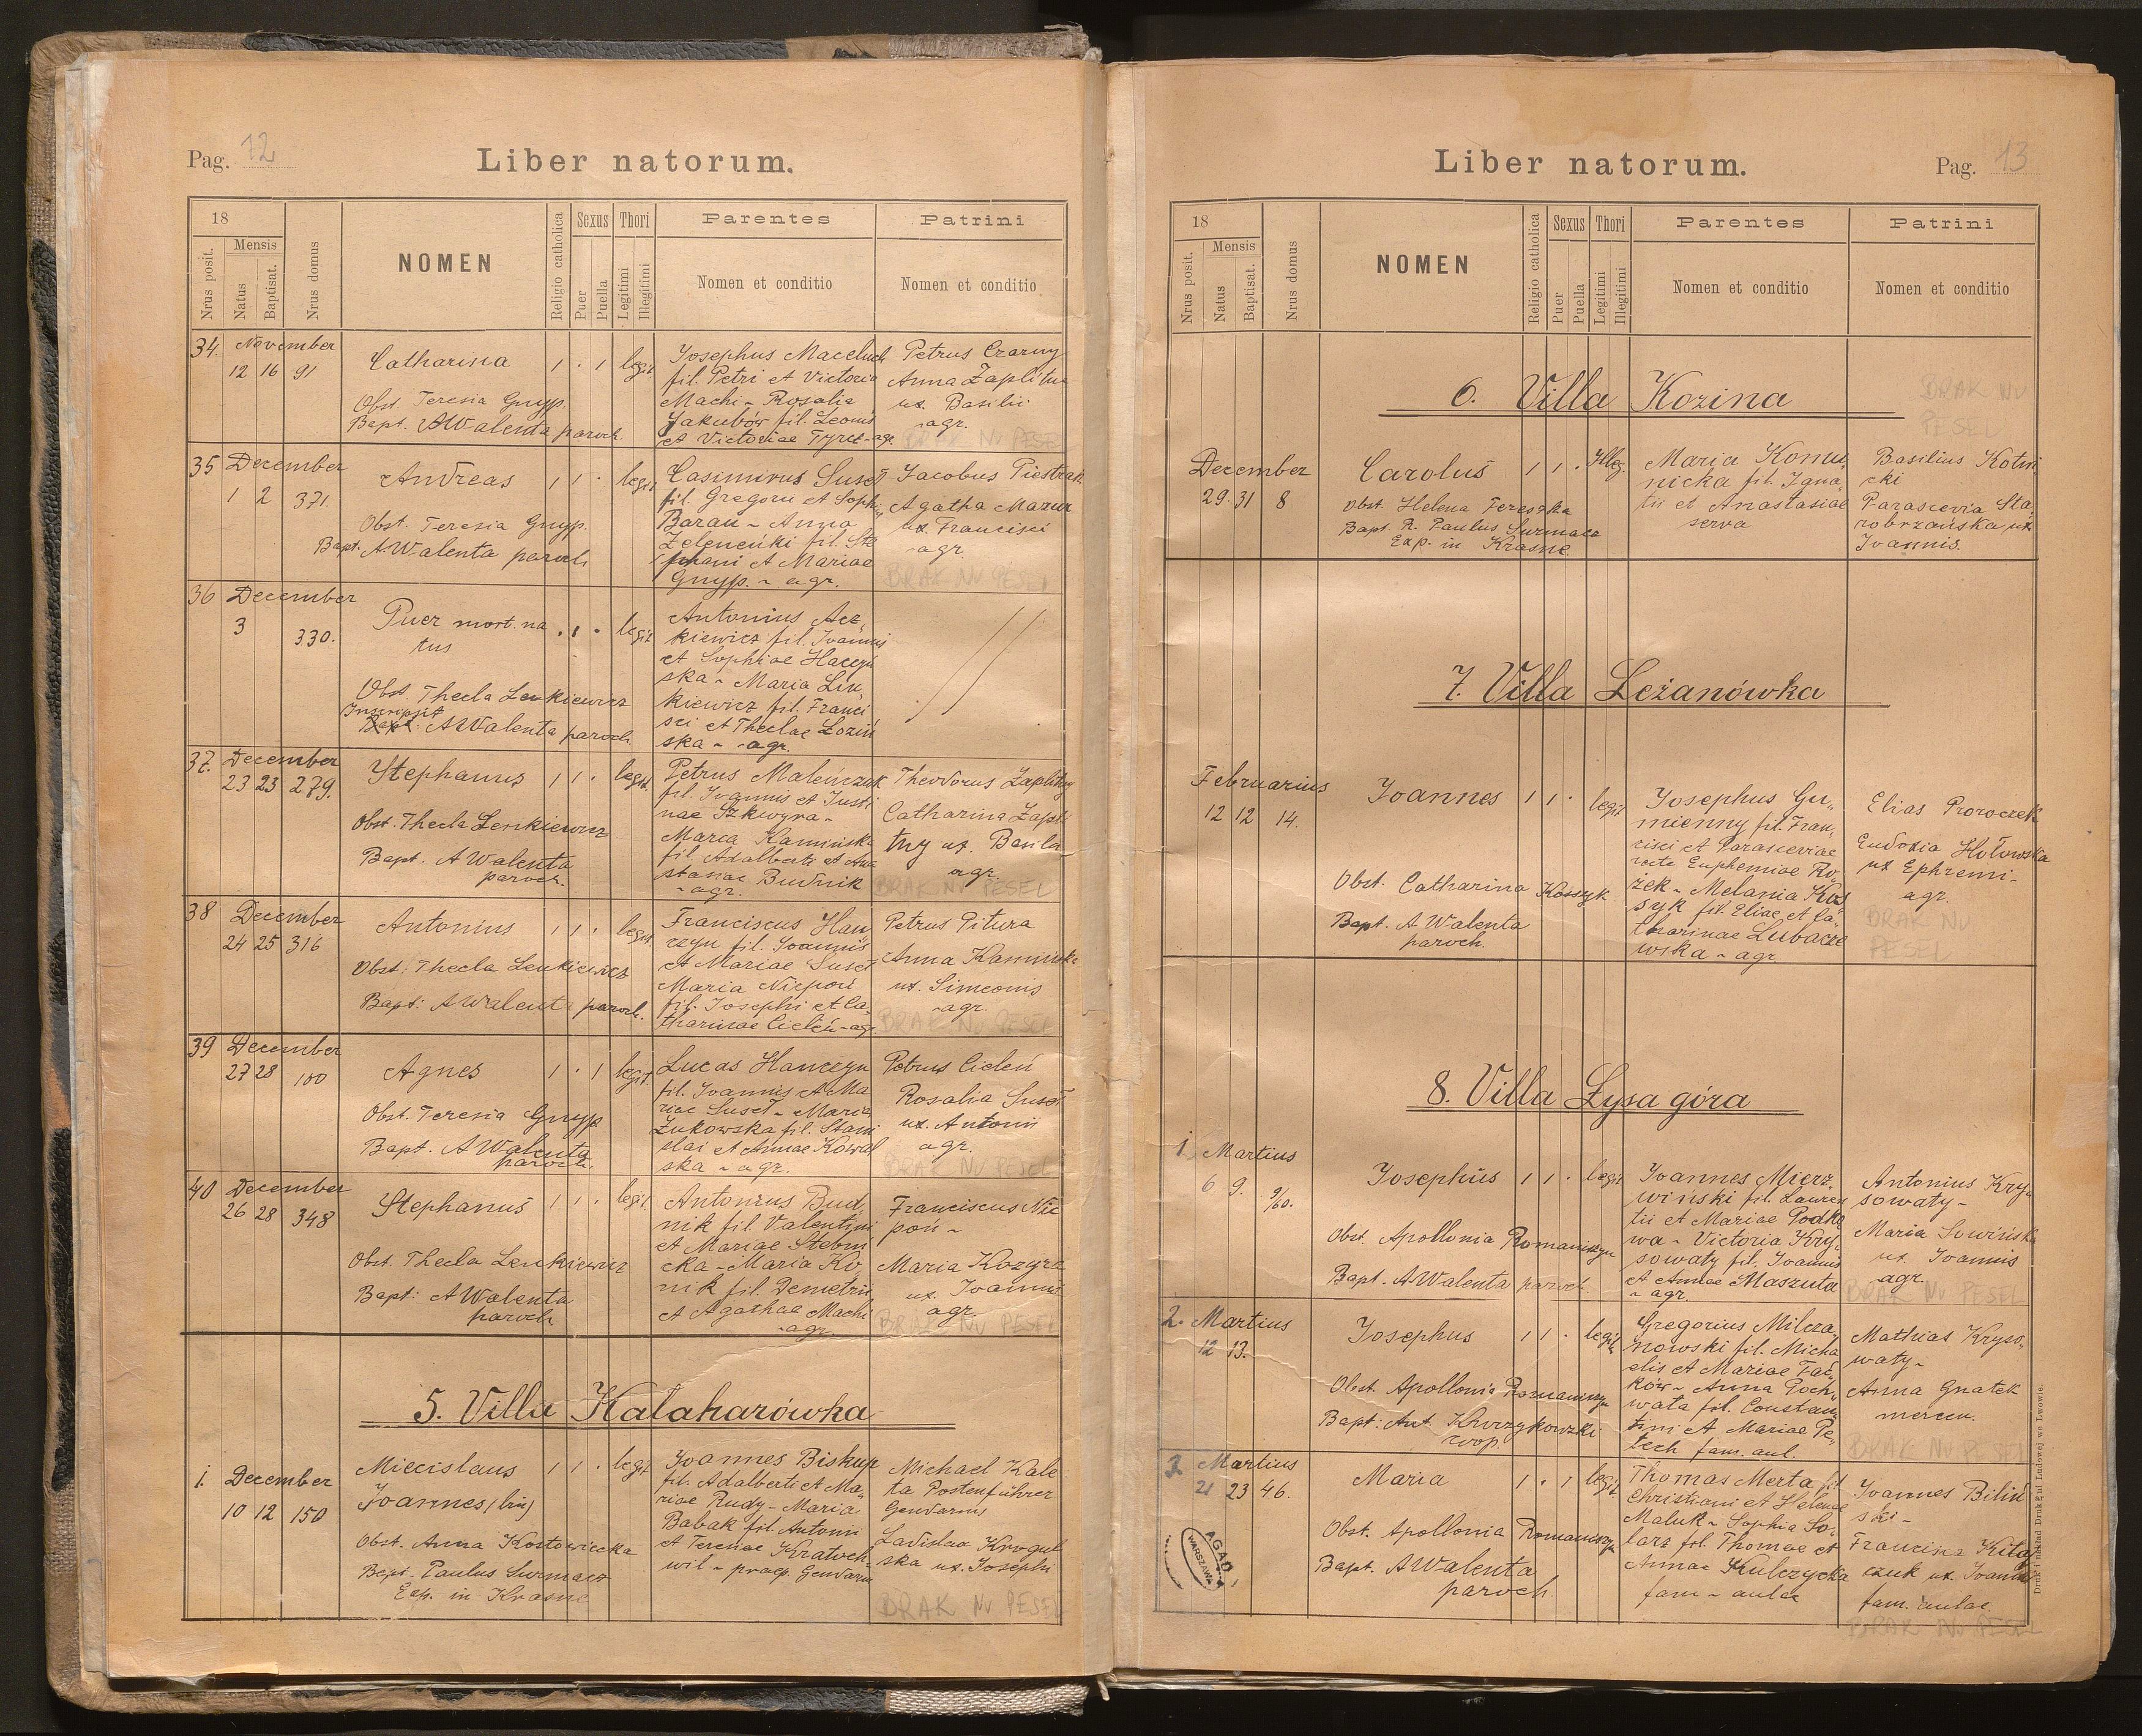 Pag. 12
Liber natorum.
18
Nrus posit.
Mensis
Natus
Baptisat.
Nrus domus
NOMEN
Religio catholica
Sexus
Puer
Puella
Thori
Legitimi
Illegitimi
Parentes
Nomen et conditio
Patrini
Nomen et conditio
34. November
12 16 91
Catharina 1 . 1 legit
Obst. Teresia Gnyp.
Bapt. A Walenta paroch.
Josephus Maceluch
fil. Petri et Victoria
Machi - Rosalia
Jakubów fil. Leonis
et Victoriae Tyrcz - agr.
Petrus Czarny
Anna Zaplitna
ux. Basilii
agr.
BRAK NU PESEL
35 December
1 2 371.
Andreas 1 1 . legit
Obst. Teresia Gnyp.
Bapt. A. Walenta paroch
Casimirus Suseł
fil. Gregorii et Sophiae
Baran - Anna
fil. Ste
phani et Mariae
Gnyp. - agr.
Jacobus Piestrak
Agatha Mazur
ux. Francisci
- agr.
BRAK NU PESEL
36 December
3 330.
Puer mort. na . 1 . legit
tus
Obst. Thecla Lenkiewicz
Inscripsit
Bapt. A Walenta paroch
Antonius
kiewicz fil. Joannis
et Sophiae Haczyń
ska - Maria Lin
kiewicz fil. Franci
sci et Theclae Łoziń
ska - agr.
37. December
23 23 279.
Stephanus 1 1 . legit.
Obst. Thecla Lenkiewicz
Bapt. A Walenta
paroch.
Petrus Maleńczuk
fil. Joannis et Justi
nae Szkwyra -
Maria Kamińska
fil. Adalberti et Ana
stasiae Budnik
- agr.
Theodorus Zaplitny
Catharina Zapli
tny ux. Basilii
agr.
BRAK NU PESEL
38 December
24 25 316
Antonius 1 1 . legit
Obst: Thecla Lenkiewicz
Bapt: A Walenta paroch.
Franciscus Han
czyn fil. Joannis
et Mariae Suseł
Maria Niepoń
fil. Josephi et Ca
tharinae Cieleń - agr
Petrus Pitura
Anna Kamińska
ux. Simeonis
- agr.
BRAK NU PESEL
39 December
27 28 100
Agnes 1 . 1 legit.
Obst. Teresia Gnyp
Bapt. A Walenta
paroch.
Lucas Hanczyn
fil. Joannis et Ma
riae Suseł - Maria
Żukowska fil. Stani
slai et Annae Kowal
ska - agr.
Petrus Cieleń
Rosalia Suseł
ux. Antonii
agr.
BRAK NU PESEL
40 December
26 28 348
Stephanus 1 1 . legit.
Obst. Thecla Lenkiewicz
Bapt: A Walenta
paroch
Antonius Bud
nik fil. Valentini
et Mariae Stebni
cka - Maria Ko
nik fil. Demetrii
et Agathae Machi
- agr
Franciscus Nie
poń -
Maria Kozyra
ux. Joannis
agr
BRAK NU PESEL
5. Villa Kałaharówka
1. December
10 12 150
Miecislaus 1 1 . legit
Joannes (bin)
Obst. Anna Kostowiecka
Bapt. Paulus Surmacz
Exp. in Krasne
Joannes Biskup
fil. Adalberti et Ma
riae Rudy - Maria
Babak fil. Antonii
et Teresiae Kratoch
wil - praep. Gendarm
Michael Kale
ta Postenführer
Gendarm
Ladislaa Krogul
ska ux. Josephi
BRAK NU PESEL
Liber natorum.
Pag. 13
18
Nrus posit.
Mensis
Natus
Baptisat.
Nrus domus
NOMEN
Religio catholica
Sexus
Puer
Puella
Thori
Legitimi
Illegitimi
Parentes
Nomen et conditio
Patrini
Nomen et conditio
6. Villa Kozina
BRAK NU
PESEL
December
29. 31 8
Carolus 1 1 . Illeg.
Obst. Helena Fereszka
Bapt. R. Paulus Surmacz
Exp. in Krasne
Maria Komu
nicka fil. Igna
tii et Anastasiae
serva
Basilius Kotwi
cki
Parascevia Sta
robrzańska ux
Joannis.
7. Villa Leżanówka
Februarius
12 12 14.
Joannes 1 1 . legit
Obst. Catharina Kossyk
Bapt. A. Walenta
paroch.
Josephus Gu
mienny fil. Fran
cisci et Parasceviae
recte Euphemiae Ro
żek - Melania Kos
syk fil. Eliae et Ca
tharinae Lubacze
wska - agr
Elias Proroczek
Eudoxia Hołowska
ux Ephremi -
agr.
BRAK NU
PESEL
8. Villa Łysa góra
1. Martius
6 9. 9/60.
Josephus 1 1 . legit
Obst. Apollonia Romaniszyn
Bapt. A Walenta paroch.
Joannes Mierz
wiński fil. Lauren
tii et Mariae Podko
wa - Victoria Kry
sowaty fil. Joannis
et Annae Maszuta
- agr.
Antonius Kry
sowaty -
Maria Sowińska
ux. Joannis
agr.
BRAK NU PESEL
2. Martius
12 13.
Josephus 1 1 . legit
Obst. Apollonia Romaniszyn
Bapt: Ant. Krzyżkowski
coop.
Gregorius Milcza
nowski fil. Micha
elis et Mariae Fać
ków - Anna Poch
wata fil. Constan
tini et Mariae Pe
tech fam. aul.
Mathias Kryso
waty -
Anna Gnatek
mercen.
BRAK NU PESEL
3 Martius
21 23 46.
Maria 1 . 1 legit
Obst. Apollonia Romaniszyn
Bapt. A Walenta
paroch
Thomas Merta fil
Christiani et Helenae
Maluk - Sophia So
larz fil. Thomae et
Annae Kulczycka
fam - aulae
Joannes Biliń
ski -
Francisca Kitaj
czuk ux. Joannis
fam. aulae
BRAK NU PESEL
AGAD
WARSZAWA
Druk i nakład Drukarni Ludowej we Lwowie.